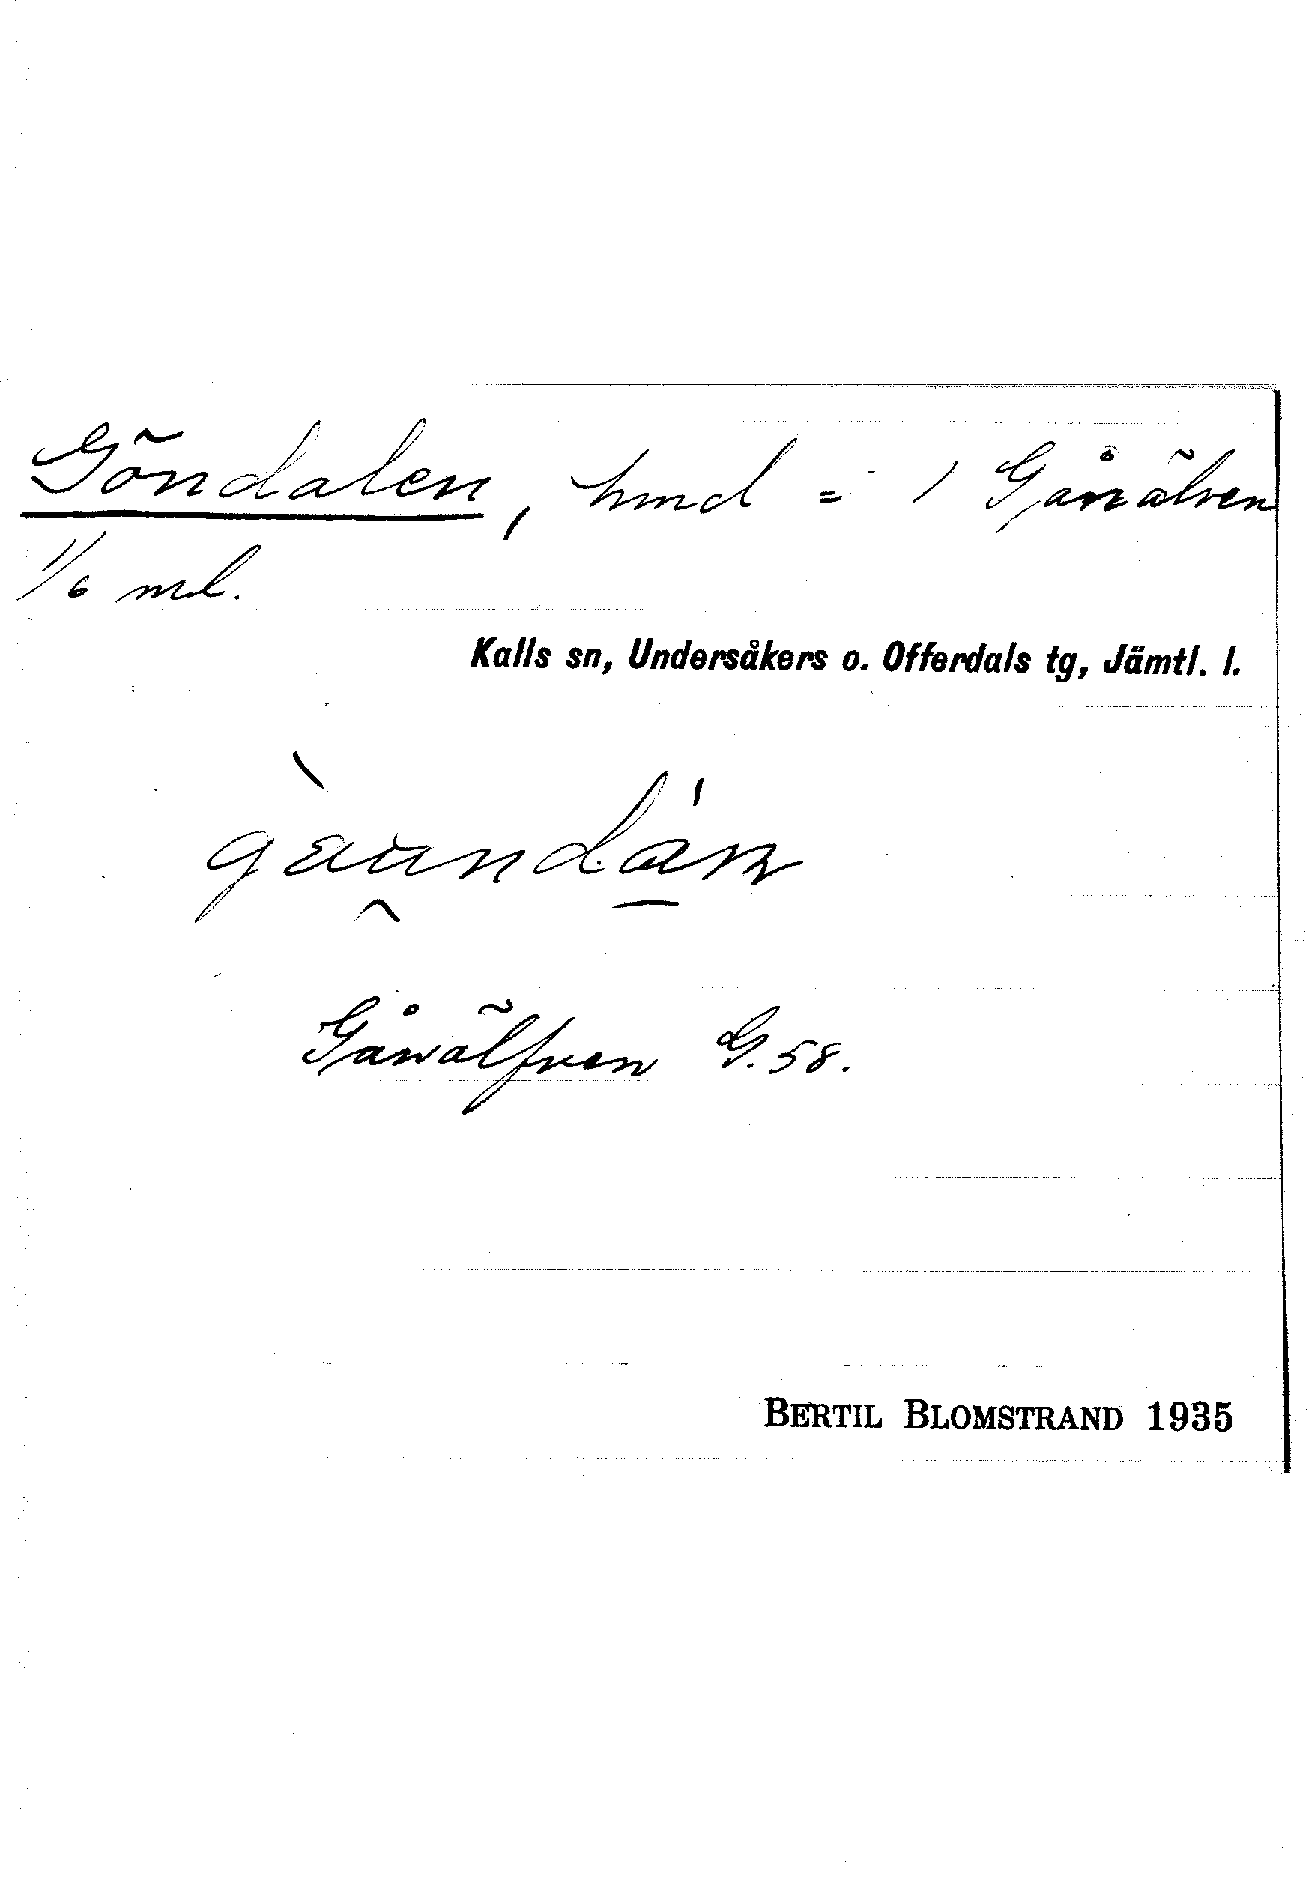 Göndalen, hmd = 1 Gånälven
1/6 ml.
Kalls sn, Undersåkers o. Offerdals tg, Jämtl. l.
Gånälfven G. 58.
BERTIL BLOMSTRAND 1935